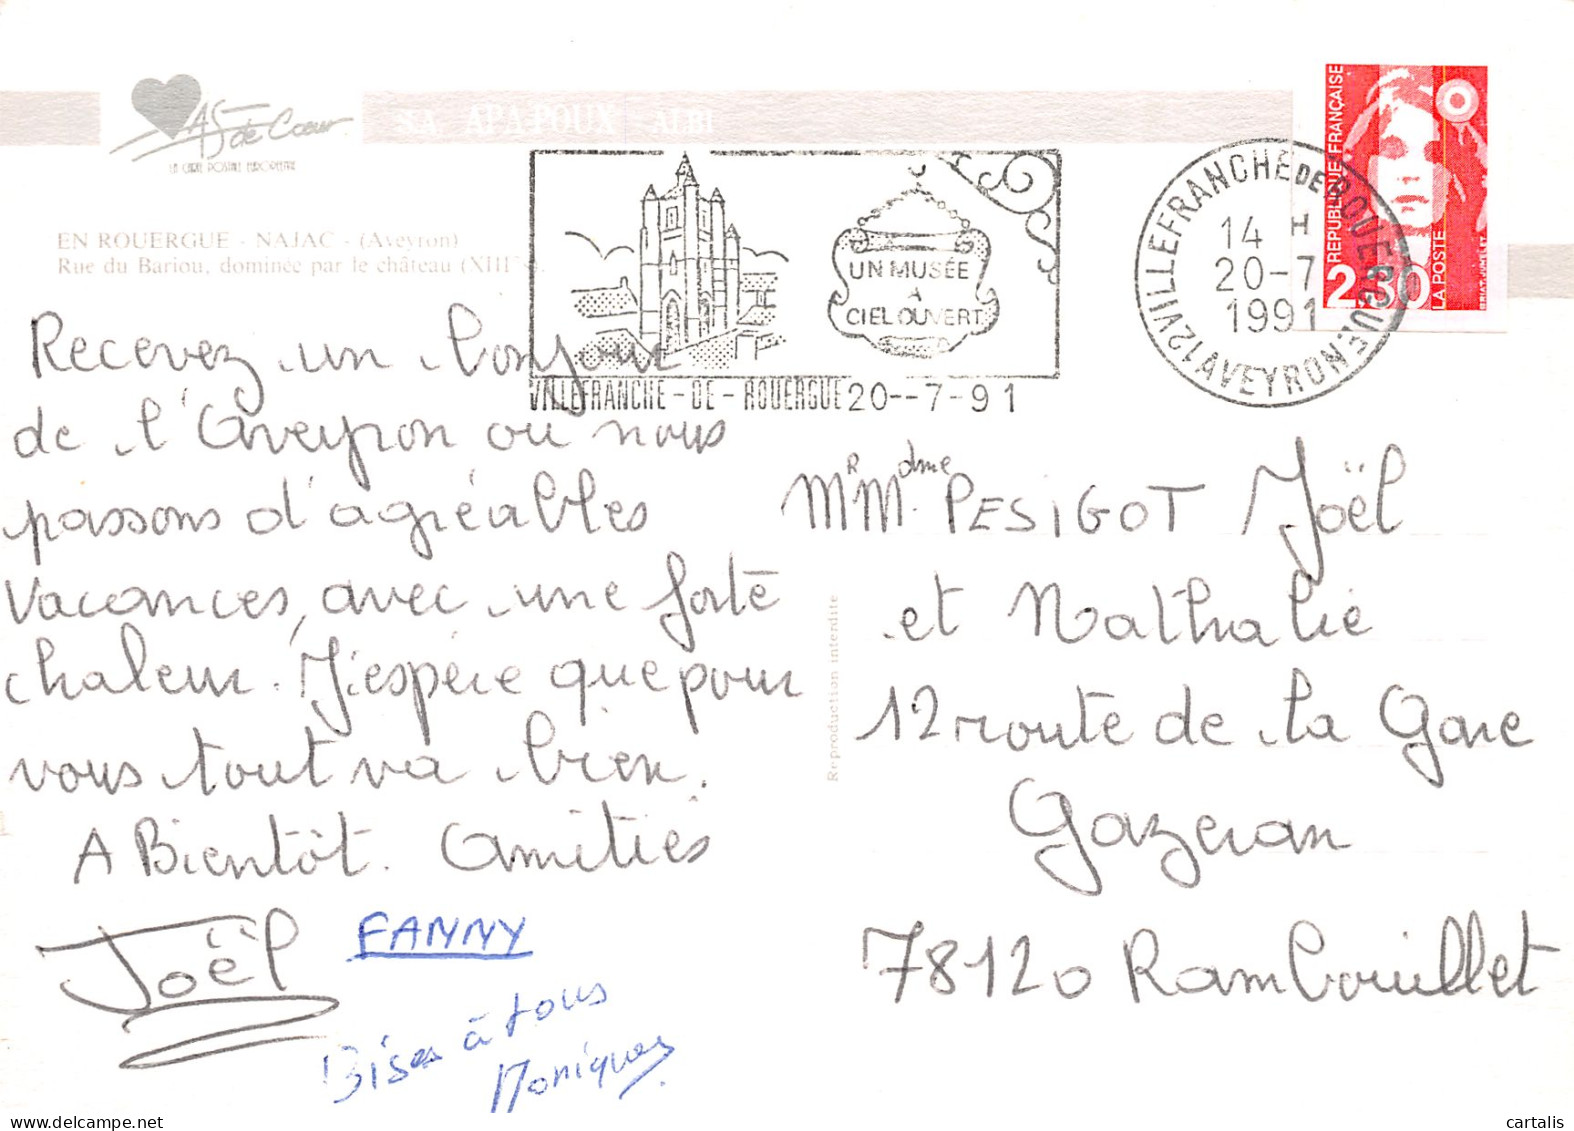 As de Coeur
LA CARTE POSTALE EUROPEENNE
S.A. APA-POUX ALBI
EN ROUERGUE - NAJAC - (Aveyron)
Rue du Bariou, dominée par le château (XIIIe s.
UN MUSÉE
A
CIEL OUVERT
VILLEFRANCHE - DE - ROUERGUE 20--7-91
VILLEFRANCHE DE ROUERGUE
14 H
20-7
1991
12 AVEYRON
REPUBLIQUE FRANÇAISE
2,30
LA POSTE
BRIAT-JUMELET
Recevez un bonjour
de l'Aveyron où nous
passons d'agréables
Vacances, avec une forte
chaleur. J'espère que pour
vous tout va bien.
A Bientôt. Amitiés
Joël
FANNY
Bises à tous
Monique
Reproduction interdite
Mr Mdme PESIGOT Joël
et Nathalie
12 route de la Gare
Gazeran
78120 Rambouillet
cartalis